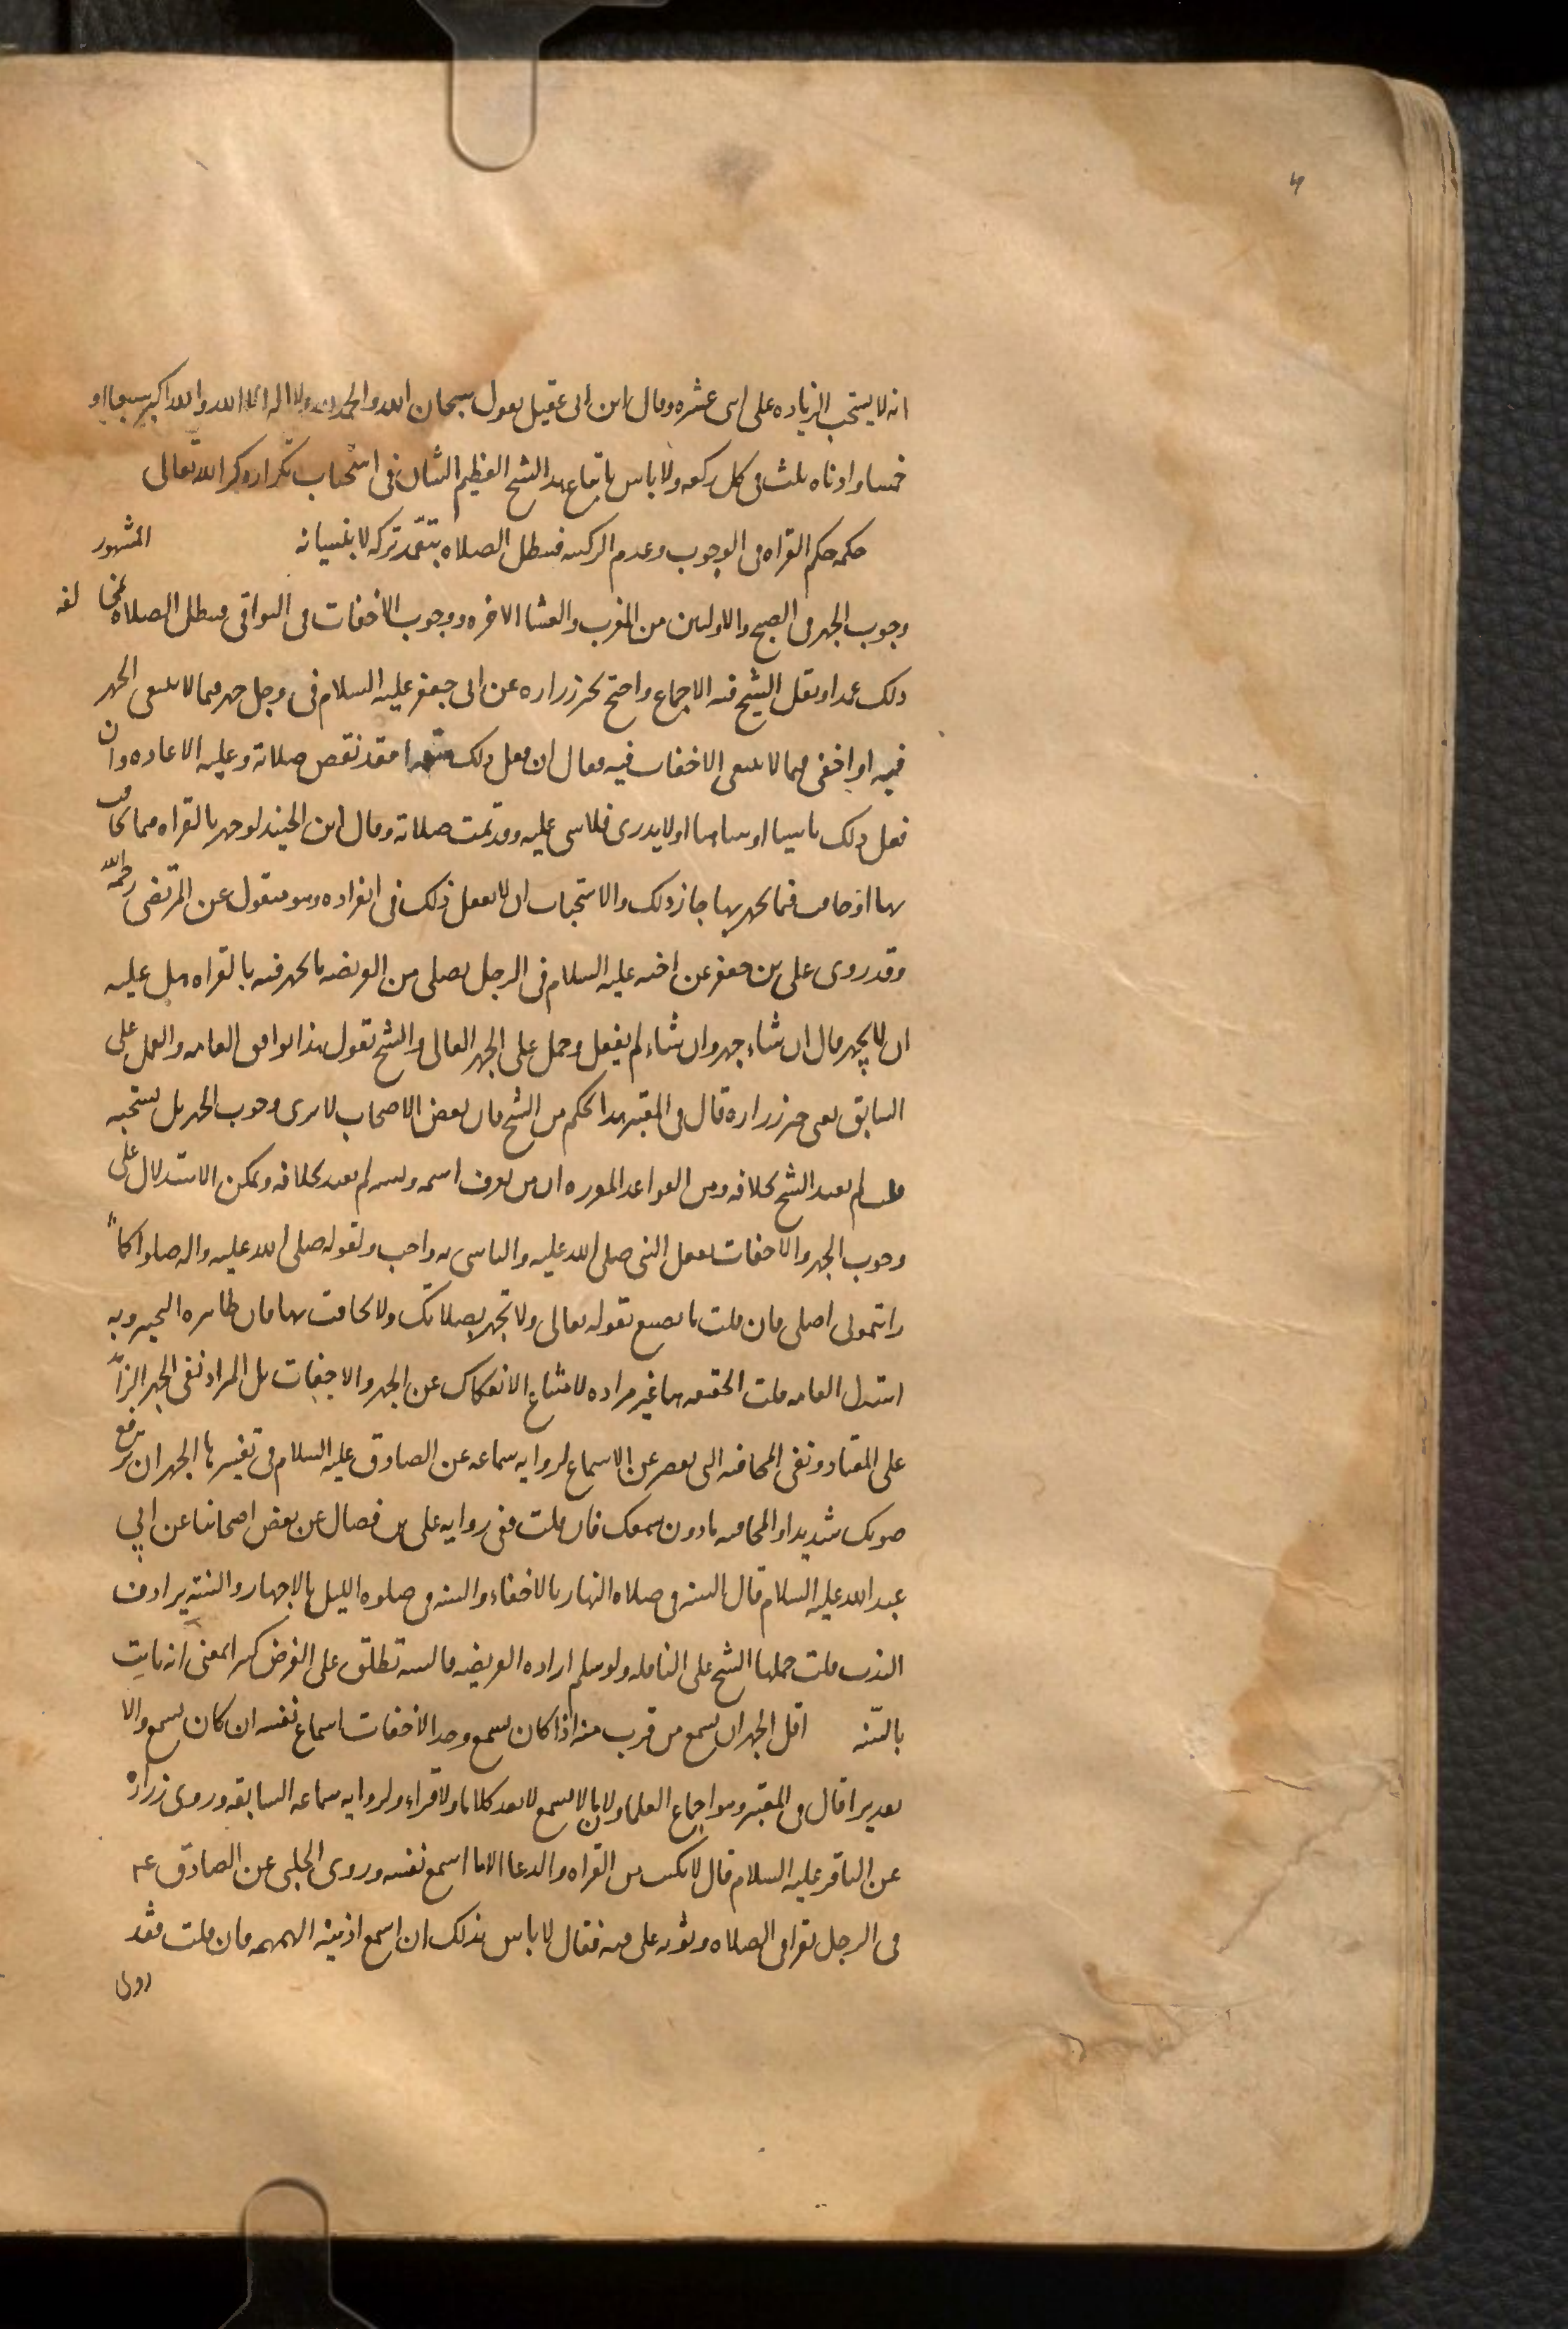 انه لا يستحب الزياده على اثنى عشره وقال ابن ابى عقيل يقول سبحان الله والحمد لله ولا اله الا الله والله اكبر سبعا او
خمسا وادناه ثلث فى كل ركعه ولا باس باتباع هذا الشيخ العظيم الشان فى استحباب تكرار ذكر الله تعالى
حكمه حكم القراه فى الوجوب وعدم الركنيه فتبطل الصلاه بتعمد تركه لا بنسيانه المشهور
وجوب الجهر فى الصبح والاوليين من المغرب والعشا الاخره ووجوب الاخفات فى البواقى فتبطل الصلاه بمخالفه
ذلك عمدا ونقل الشيخ فيه الاجماع واحتج بخبر زراره عن ابى جعفر عليه السلام فى رجل جهر فيما لا ينبغى الجهر
فيه او اخفى فيما لا ينبغى الاخفات فيه فقال ان فعل ذلك متعمدا فقد نقص صلاته وعليه الاعاده وان
فعل ذلك ناسيا او ساهيا او لا يدرى فلا شى عليه وقد تمت صلاته وقال ابن الجنيد لو جهر بالقراه فيما يخافت
بها او خافت فيما يجهر بها جاز ذلك والاستحباب ان لا يفعل ذلك فى انفراده وهو منقول عن المرتضى رحمه الله
وقد روى على بن جعفر عن اخيه عليه السلام فى الرجل يصلى من الفريضه ما يجهر فيه بالقراه هل عليه
ان لا يجهر قال ان شاء جهر وان شاء لم يفعل وحمل على الجهر العالى والشيخ يقول هذا يوافق العامه والعمل على
السابق يعنى خبر زراره قال فى المعتبر هذا تحكم من الشيخ فان بعض الاصحاب لا يرى وجوب الجهر بل يستحبه
قلت لم يعتد الشيخ بخلافه ومن القواعد المقرره ان من يعرف اسمه ونسبه لم يعتد بخلافه ويمكن الاستدلال على
وجوب الجهر والاخفات بفعل النبى صلى الله عليه والتاسى به واجب ولقوله صلى الله عليه واله صلوا كما
رايتمونى اصلى فان قلت ما تصنع بقوله تعالى ولا تجهر بصلاتك ولا تخافت بها فان ظاهره التخيير وبه
استدل العامه قلت الحقيقه هنا غير مراده لامتناع الانفكاك عن الجهر والاخفات بل المراد نفى الجهر الزائد
على المعتاد ونفى المخافته التى تقصر عن الاسماع لروايه سماعه عن الصادق عليه السلام فى تفسيرها الجهر ان ترفع
صوتك شديدا والمخافته ما دون سمعك فان قلت ففى روايه على بن فضال عن بعض اصحابنا عن ابي
عبد الله عليه السلام قال السنه فى صلاه النهار بالاخفاء والسنه فى صلوه الليل بالاجهار والسنه يرادف
الندب قلت حملها الشيخ على النافله ولو سلم اراده الفريضه فالسنه تطلق على الفرض كثيرا بمعنى انه ثابت
بالسنه اقل الجهر ان يسمع من قرب منه اذا كان يسمع وحد الاخفات اسماع نفسه ان كان يسمع والا
تقديرا قال فى المعتبر وهو اجماع العلما ولان ما لا يسمع لا يعد كلاما ولا قراءه ولروايه سماعه السابقه وروى زراره
عن الباقر عليه السلام قال لا يكتب من القراه والدعا الا ما اسمع نفسه وروى الحلبى عن الصادق ع
فى الرجل يقرا فى الصلاه وثوبه على فيه فقال لا باس بذلك ان اسمع اذنيه الهمهمه فان قلت فقد
روى